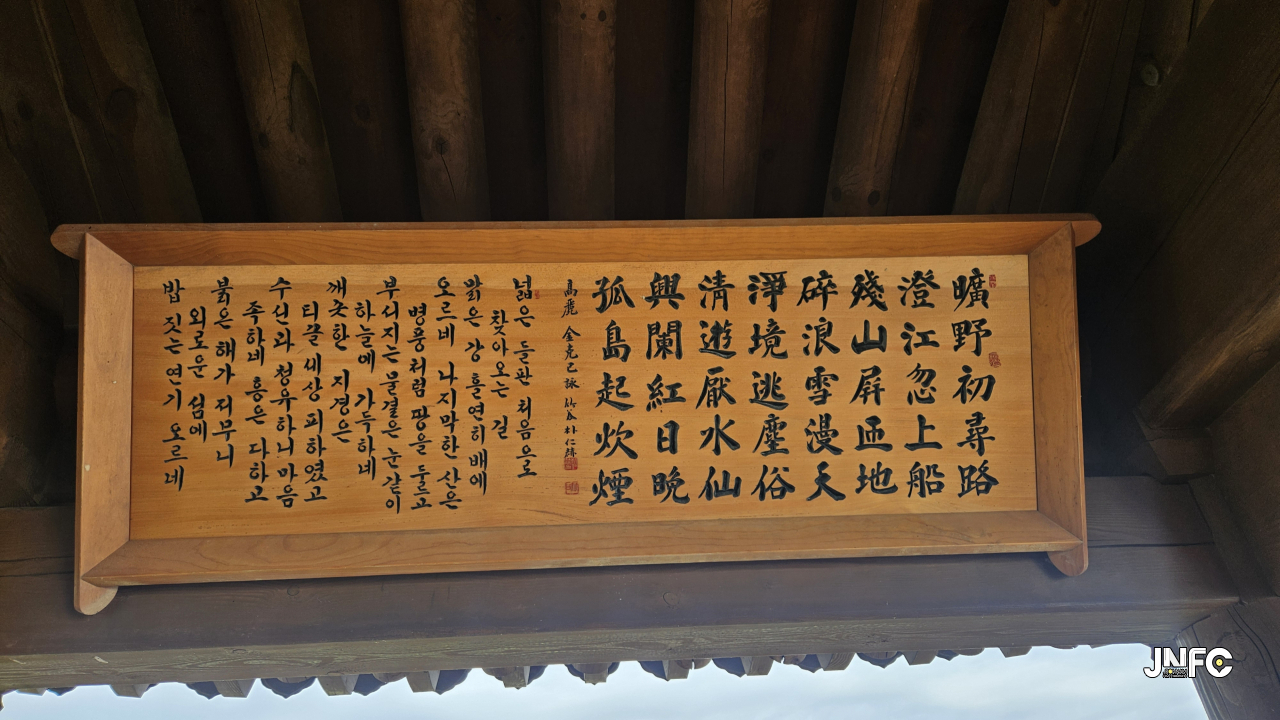 曠野初尋路
澄江忽上船
殘山屛匝地
碎浪雪漫天
淨境逃塵俗
清遊厭水仙
興闌紅日晩
孤島起炊煙
高麗 金克己詠 朴仁
넓은 들판 처음으로
찾아오는 길
맑은 강 홀연히 배에
오르네 나지막한 산은
병풍처럼 땅을 둘르고
부서지는 물결은 눈같이
하늘에 가득하네
깨끗한 지경은
티끌세상 피하였고
수선과 청유하니 마음
족하네 흥은 다하고
붉은 해가 저무니
외로운 섬에
밥 짓는 연기 오르네
JNFC